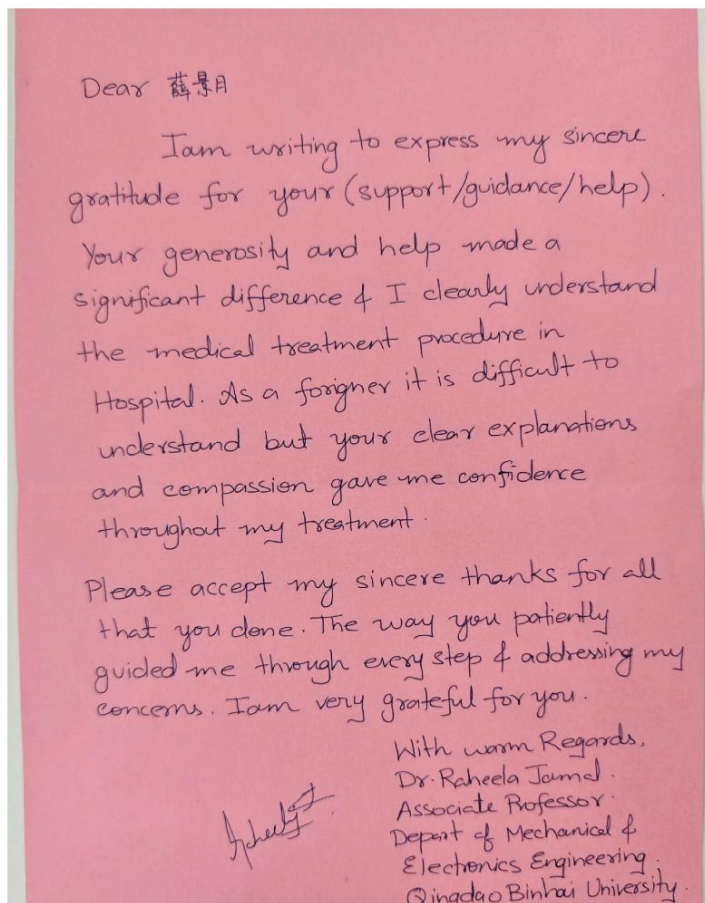 Dear 薛景月
Iam writing to express my sincere
gratitude for your (support/guidance/help).
Your generosity and help made a
significant difference & I clearly understand
the medical treatment procedure in
Hospital. As a forigner it is difficult to
understand but your clear explanations
and compassion gave me confidence
throughout my treatment.
Please accept my sincere thanks for all
that you done. The way you patiently
guided me through every step & addressing my
concerns. Iam very grateful for you.
With warm Regards,
Dr. Raheela Jamal.
Associate Professor.
Depart of Mechanical &
Electronics Engineering.
Qingdao Binhai University.